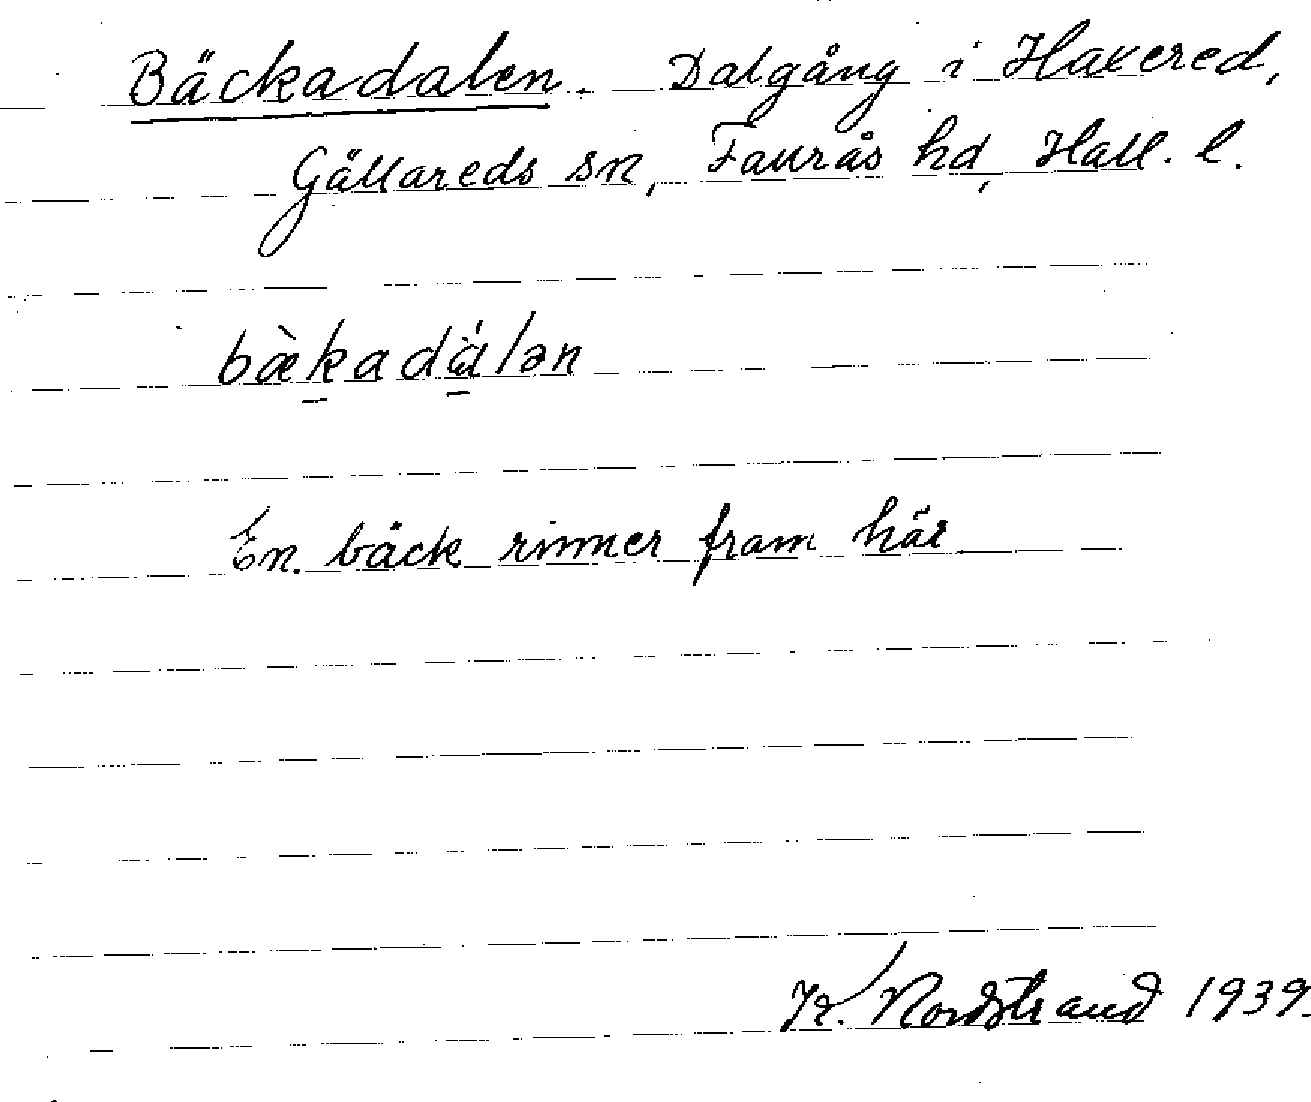 Bäckadalen. Dalgång i Havered,
Gällareds sn, Faurås hd, Hall. l.
bæ̀k̠adà̠lən
En bäck rinner fram här
K. Nordstrand 1939.